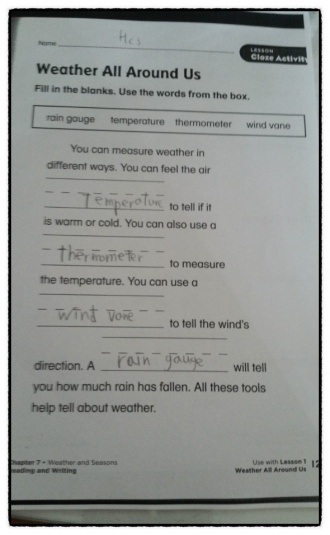 Name
LESSON
Cloze Activity
Weather All Around Us
Fill in the blanks. Use the words from the box.
rain gauge temperature thermometer wind vane
You can measure weather in
different ways. You can feel the air
Temperature to tell if it
is warm or cold. You can also use a
thermometer to measure
the temperature. You can use a
wind vane to tell the wind's
direction. A rain gauge will tell
you how much rain has fallen. All these tools
help tell about weather.
Chapter 7 • Weather and Seasons Use with Lesson 1
Reading and Writing Weather All Around Us